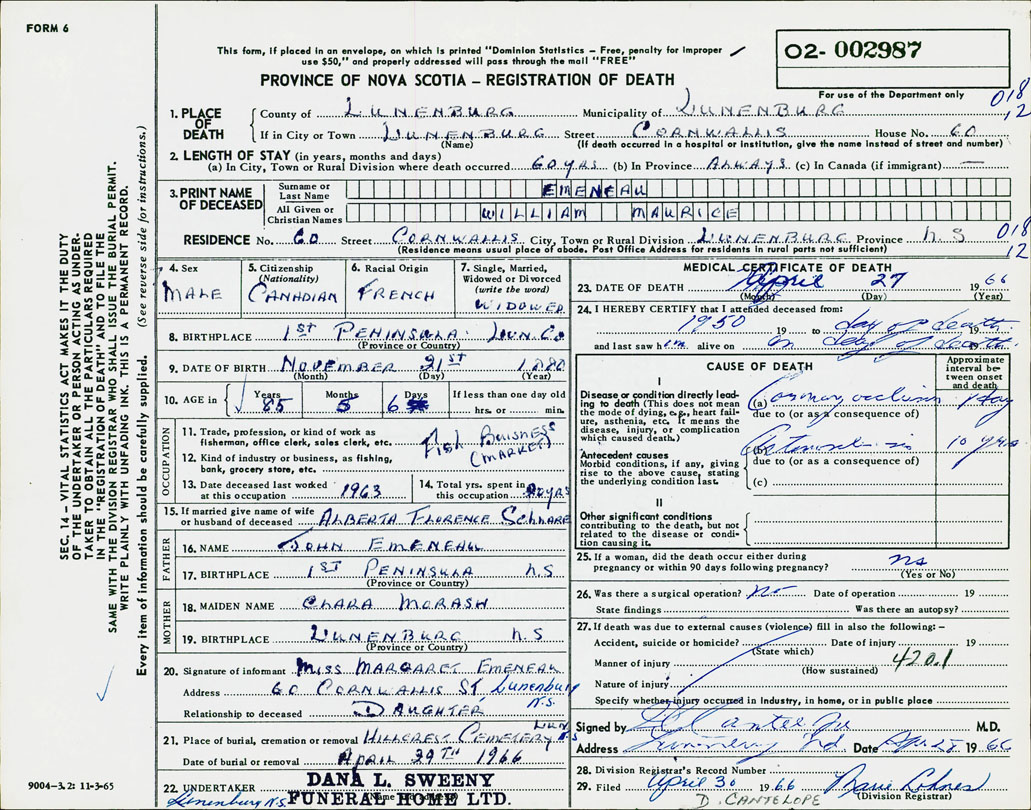 FORM 6
This form, if placed in an envelope, on which is printed "Dominion Statistics – Free, penalty for improper
use $50," and properly addressed will pass through the mail "FREE"
02- 002987
PROVINCE OF NOVA SCOTIA – REGISTRATION OF DEATH
For use of the Department only
018
12
1. PLACE OF DEATH
County of LUNENBURG Municipality of LUNENBURG
If in City or Town LUNENBURG Street CORNWALLIS House No. 60
(Name) (If death occurred in a hospital or institution, give the name instead of street and number)
2. LENGTH OF STAY (in years, months and days)
(a) In City, Town or Rural Division where death occurred 60 YRS (b) In Province ALWAYS (c) In Canada (if immigrant) —
3. PRINT NAME OF DECEASED
Surname or Last Name EMENEAU
All Given or Christian Names WILLIAM MAURICE
RESIDENCE No. 60 Street CORNWALLIS City, Town or Rural Division LUNENBURG Province N.S
(Residence means usual place of abode. Post Office Address for residents in rural parts not sufficient)
018
12
4. Sex
MALE
5. Citizenship
(Nationality)
CANADIAN
6. Racial Origin
FRENCH
7. Single, Married,
Widowed or Divorced
(write the word)
WIDOWED
8. BIRTHPLACE 1ST PENINSULA LUN. CO
(Province or Country)
9. DATE OF BIRTH NOVEMBER 21ST 1880
(Month) (Day) (Year)
10. AGE in
Years 85
Months 5
Days 6
If less than one day old
hrs. or min.
OCCUPATION
11. Trade, profession, or kind of work as
fisherman, office clerk, sales clerk, etc.
FISH BUISNESS
(MARKET)
12. Kind of industry or business, as fishing,
bank, grocery store, etc.
13. Date deceased last worked
at this occupation 1963
14. Total yrs. spent in
this occupation YRS
15. If married give name of wife
or husband of deceased ALBERTA FLORENCE
FATHER
16. NAME JOHN EMENEAU
17. BIRTHPLACE 1ST PENINSULA N.S
(Province or Country)
MOTHER
18. MAIDEN NAME CLARA MORASH
19. BIRTHPLACE LUNENBURG N.S
(Province or Country)
20. Signature of informant MISS MARGARET EMENEAU
Address 60 CORNWALLIS ST Lunenburg
N.S.
Relationship to deceased DAUGHTER
21. Place of burial, cremation or removal HILLCREST CEMETERY LUN N.S
Date of burial or removal APRIL 29TH 1966
22. UNDERTAKER
DANA L. SWEENY
FUNERAL HOME LTD.
Lunenburg N.S
MEDICAL CERTIFICATE OF DEATH
23. DATE OF DEATH April 27 1966
(Month) (Day) (Year)
24. I HEREBY CERTIFY that I attended deceased from:
1950 19 to day of death 19
and last saw him alive on day of death 19
CAUSE OF DEATH
Approximate
interval be-
tween onset
and death
I
Disease or condition directly lead-
ing to death (This does not mean
the mode of dying, e.g., heart fail-
ure, asthenia, etc. It means the
disease, injury, or complication
which caused death.)
(a) Coronary occlusion 1 day
due to (or as a consequence of)
Antecedent causes
Morbid conditions, if any, giving
rise to the above cause, stating
the underlying condition last.
(b) 10 yrs
due to (or as a consequence of)
(c)
II
Other significant conditions
contributing to the death, but not
related to the disease or condi-
tion causing it.
25. If a woman, did the death occur either during
pregnancy or within 90 days following pregnancy?
(Yes or No)
26. Was there a surgical operation? no Date of operation 19
State findings Was there an autopsy?
27. If death was due to external causes (violence) fill in also the following: –
Accident, suicide or homicide? Date of injury 19
(State which)
Manner of injury 420.1
(How sustained)
Nature of injury
Specify whether injury occurred in industry, in home, or in public place
Signed by M.D.
Address Date Apr 28 1966
28. Division Registrar's Record Number
29. Filed April 30 1966
(Division Registrar)
D. CANTELOPE
SEC. 14 – VITAL STATISTICS ACT MAKES IT THE DUTY
OF THE UNDERTAKER OR PERSON ACTING AS UNDER-
TAKER TO OBTAIN ALL THE PARTICULARS REQUIRED
IN THE "REGISTRATION OF DEATH" AND TO FILE THE
SAME WITH THE DIVISION REGISTRAR WHO SHALL ISSUE THE BURIAL PERMIT.
WRITE PLAINLY WITH UNFADING INK. THIS IS A PERMANENT RECORD.
Every item of information should be carefully supplied. (See reverse side for instructions.)
9004-3.2: 11-3-65